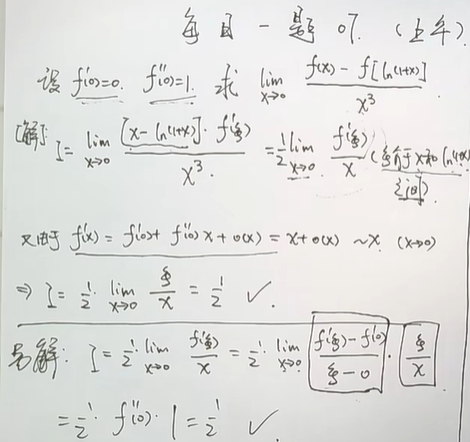 每日一题 07. (上午).
设 f'(0)=0. f''(0)=1. 求 lim x→0 (f(x) - f[ln(1+x)]) / x³
[解] I = lim x→0 ([x - ln(1+x)]·f'(ξ)) / x³. = 1/2 lim x→0 f'(ξ)/x (ξ介于x和ln(1+x)之间).
又由于 f'(x) = f'(0) + f''(0)x + o(x) = x + o(x) ~ x. (x→0)
⇒ I = 1/2·lim x→0 ξ/x = 1/2 ✓.
另解: I = 1/2·lim x→0 f'(ξ)/x = 1/2·lim x→0 (f'(ξ) - f'(0))/(ξ - 0) · ξ/x
= 1/2·f''(0)·1 = 1/2 ✓